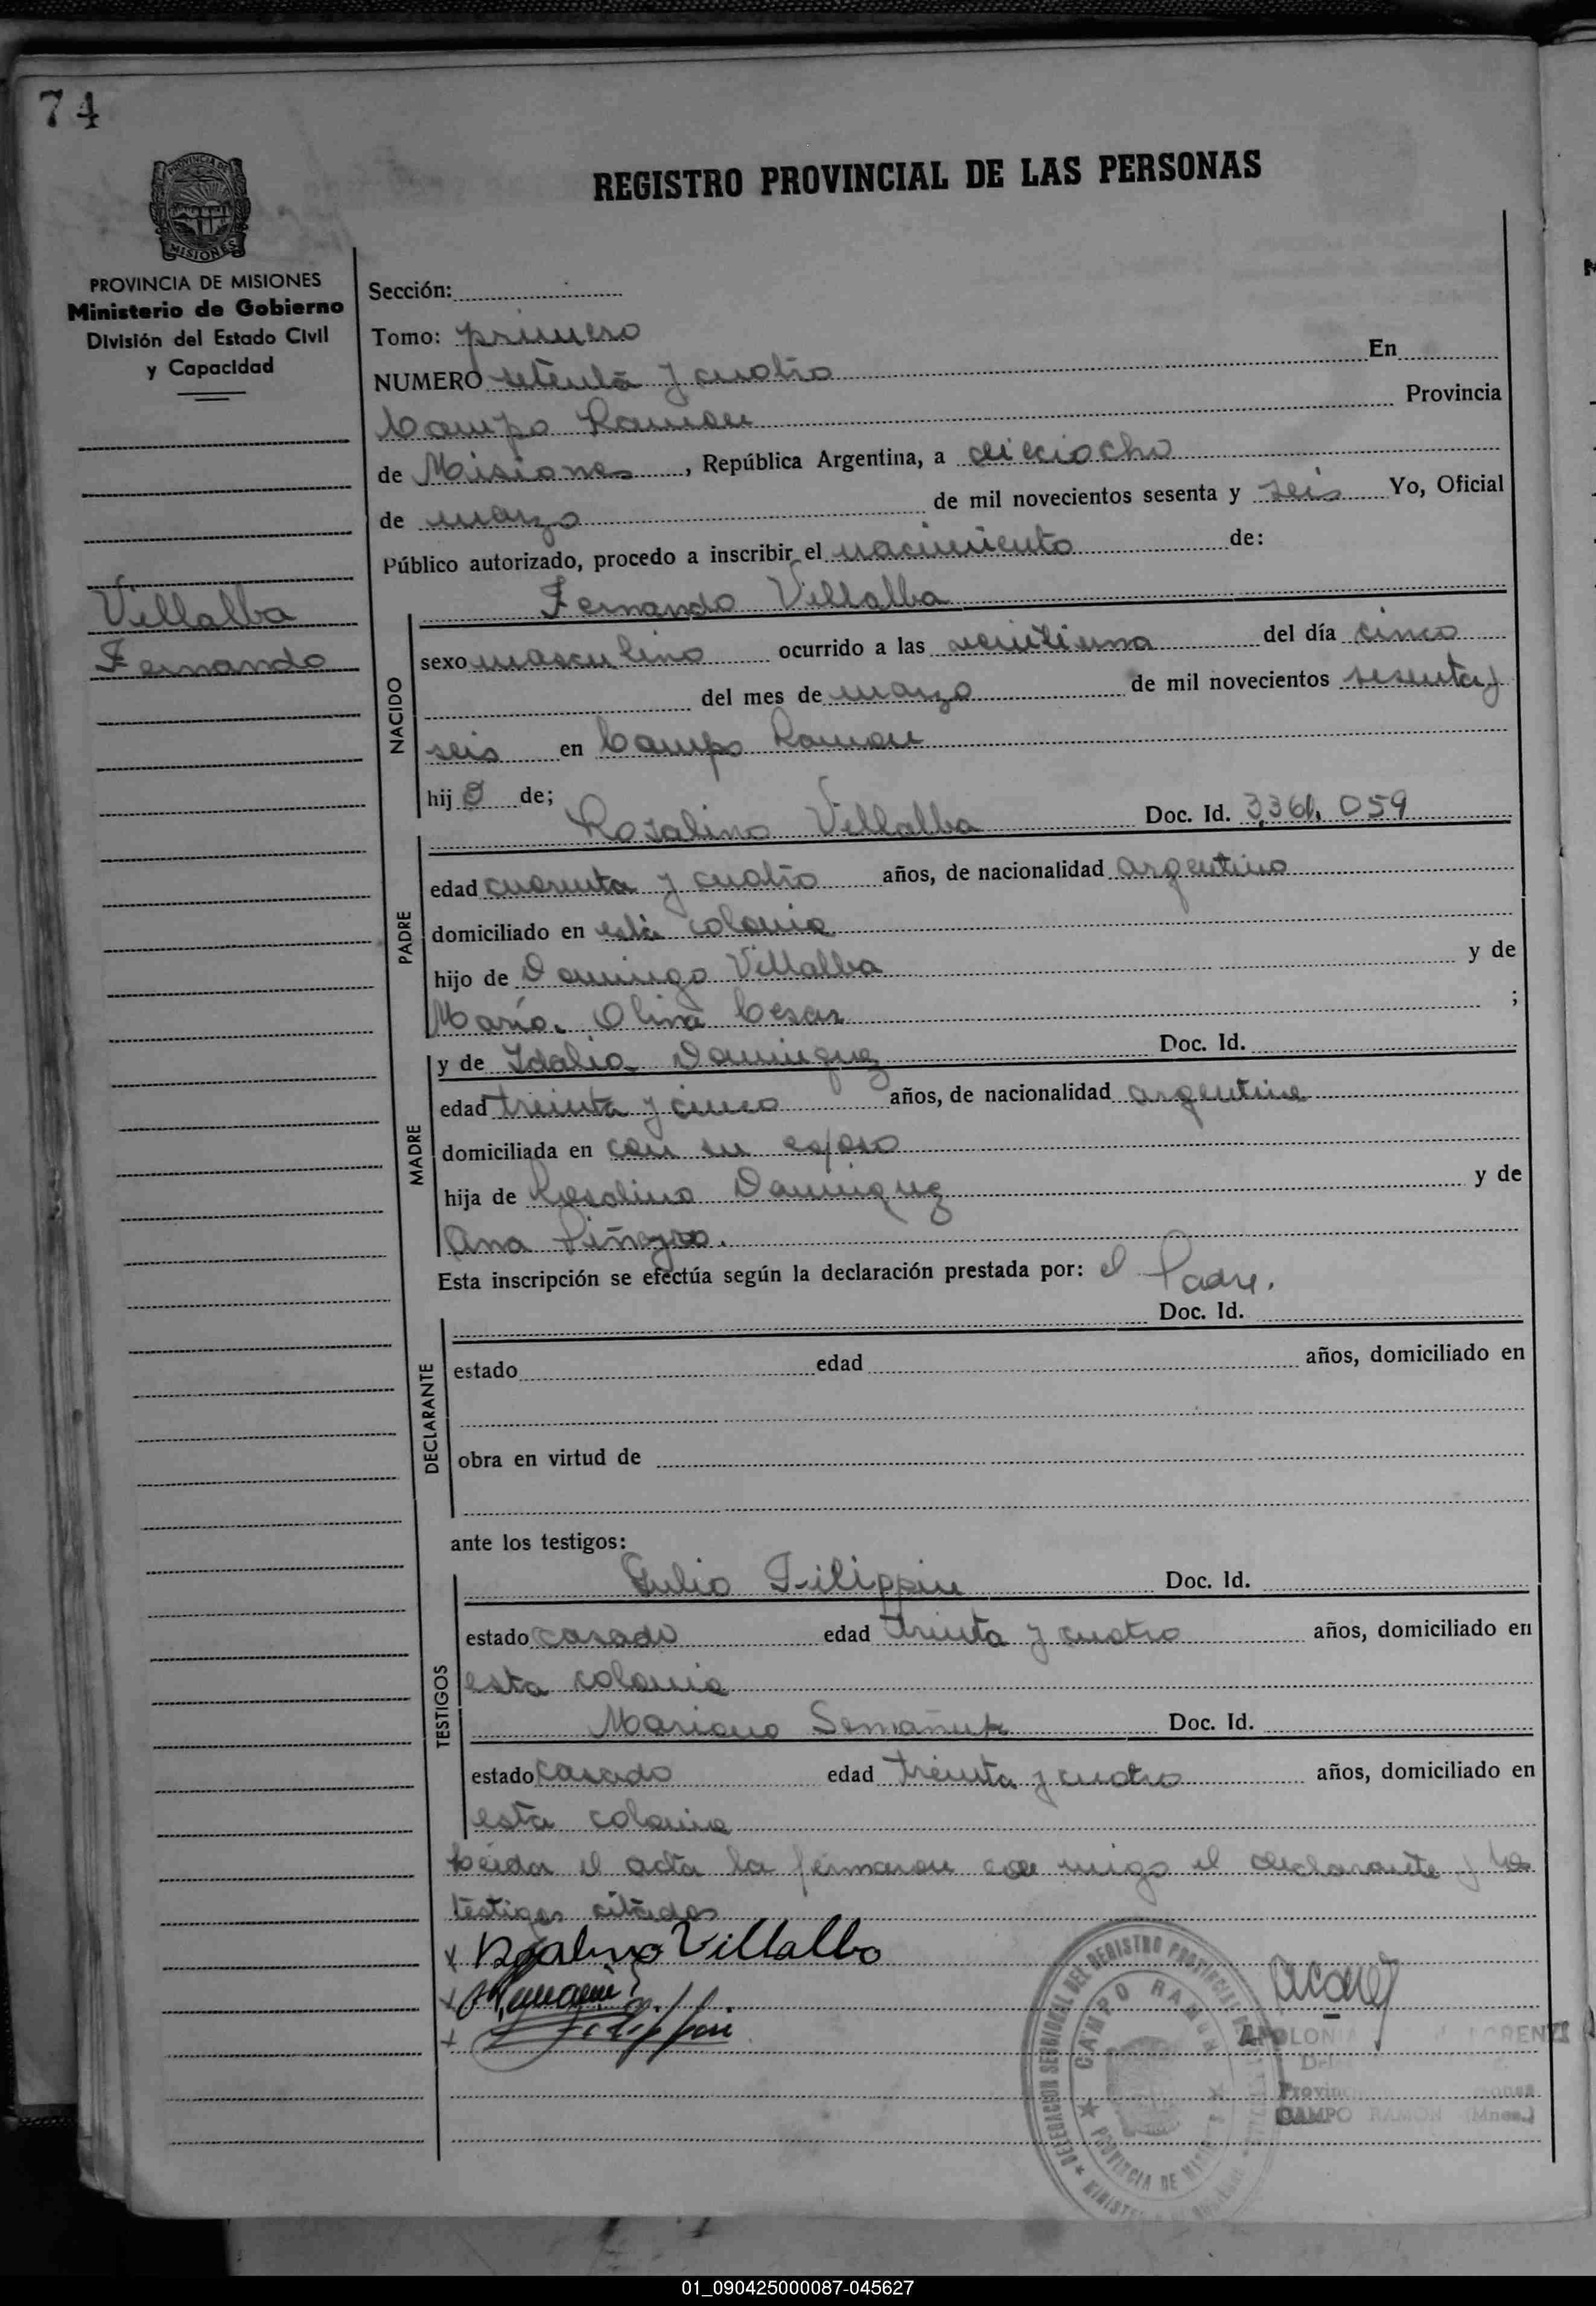 74
PROVINCIA DE
MISIONES
REGISTRO PROVINCIAL DE LAS PERSONAS
PROVINCIA DE MISIONES
Ministerio de Gobierno
División del Estado Civil
y Capacidad
Villalba
Fernando
Sección:
Tomo: primero
NUMERO setenta y cuatro En
Campo Ramon Provincia
de Misiones, República Argentina, a dieciocho
de marzo de mil novecientos sesenta y seis Yo, Oficial
Público autorizado, procedo a inscribir el nacimiento de:
Fernando Villalba
NACIDO
sexo masculino ocurrido a las veintiuna del día cinco
del mes de marzo de mil novecientos sesenta y
seis en Campo Ramon
hijo de;
Rosalino Villalba Doc. Id. 3,361,059
PADRE
edad cuarenta y cuatro años, de nacionalidad argentino
domiciliado en esta colonia
hijo de Domingo Villalba y de
María Olina Cesar ;
MADRE
y de Idalia Dominguez Doc. Id.
edad treinta y cinco años, de nacionalidad argentina
domiciliada en con su esposo
hija de Rosalino Dominguez y de
Ana Piñeyro.
Esta inscripción se efectúa según la declaración prestada por: el Padre.
Doc. Id.
DECLARANTE
estado edad años, domiciliado en
obra en virtud de
ante los testigos:
Julio Filippin Doc. Id.
TESTIGOS
estado casado edad treinta y cuatro años, domiciliado en
esta colonia
Mariano Semañuk Doc. Id.
estado casado edad treinta y cuatro años, domiciliado en
esta colonia
Leida el acta la firmaron con migo el declarante y los
testigos citados
x Rosalino Villalba
x
x Filippin
DELEGACION SECCIONAL DEL REGISTRO PROVINCIAL
CAMPO RAMON
PROVINCIA DE
APOLONIA LORENZI
CAMPO RAMON (Mnes.)
01_090425000087-045627